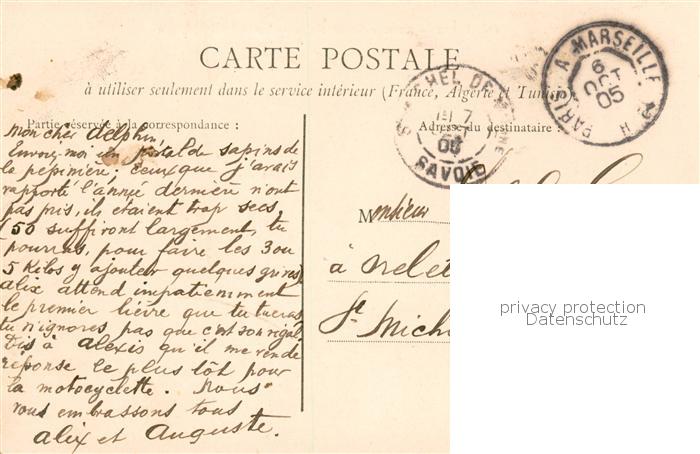 CARTE POSTALE
à utiliser seulement dans le service intérieur (France, Algérie et Tunisie)
PARIS A MARSEILLE
6
OCT
05
2° H
HEL DE M
7
SAVOIE
Partie réservée à la correspondance :
Adresse du destinataire :
Mon cher Delphin,
Envoie-moi un postal de sapins de
la pépinière, ceux que j'avais
rapporté l'année dernière n'ont
pas pris, ils étaient trop secs,
(50 suffiront largement, tu
pourras, pour faire les 3 ou
5 Kilos y ajouter quelques grives)
alix attend impatiemment
le premier lièvre que tu tueras,
tu n'ignores pas que c'est son régal
Dis à alexis qu'il me rende
réponse le plus tôt pour
la motocyclette. Nous
vous embrassons tous
alix et Auguste.
Monsieur
à
St Mich
privacy protection
Datenschutz